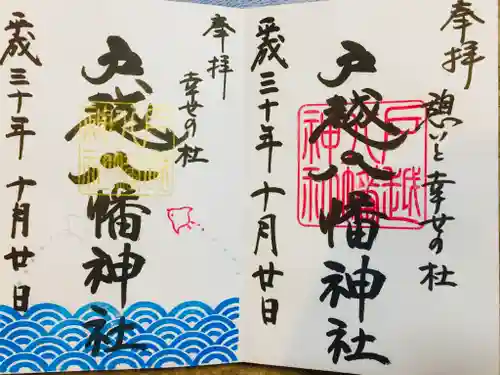 奉拝
憩いと幸せの杜
戸越八幡神社
戸越八幡神社
平成三十年十月廿日
奉拝
幸せの杜
戸越八幡神社
平成三十年十月廿日